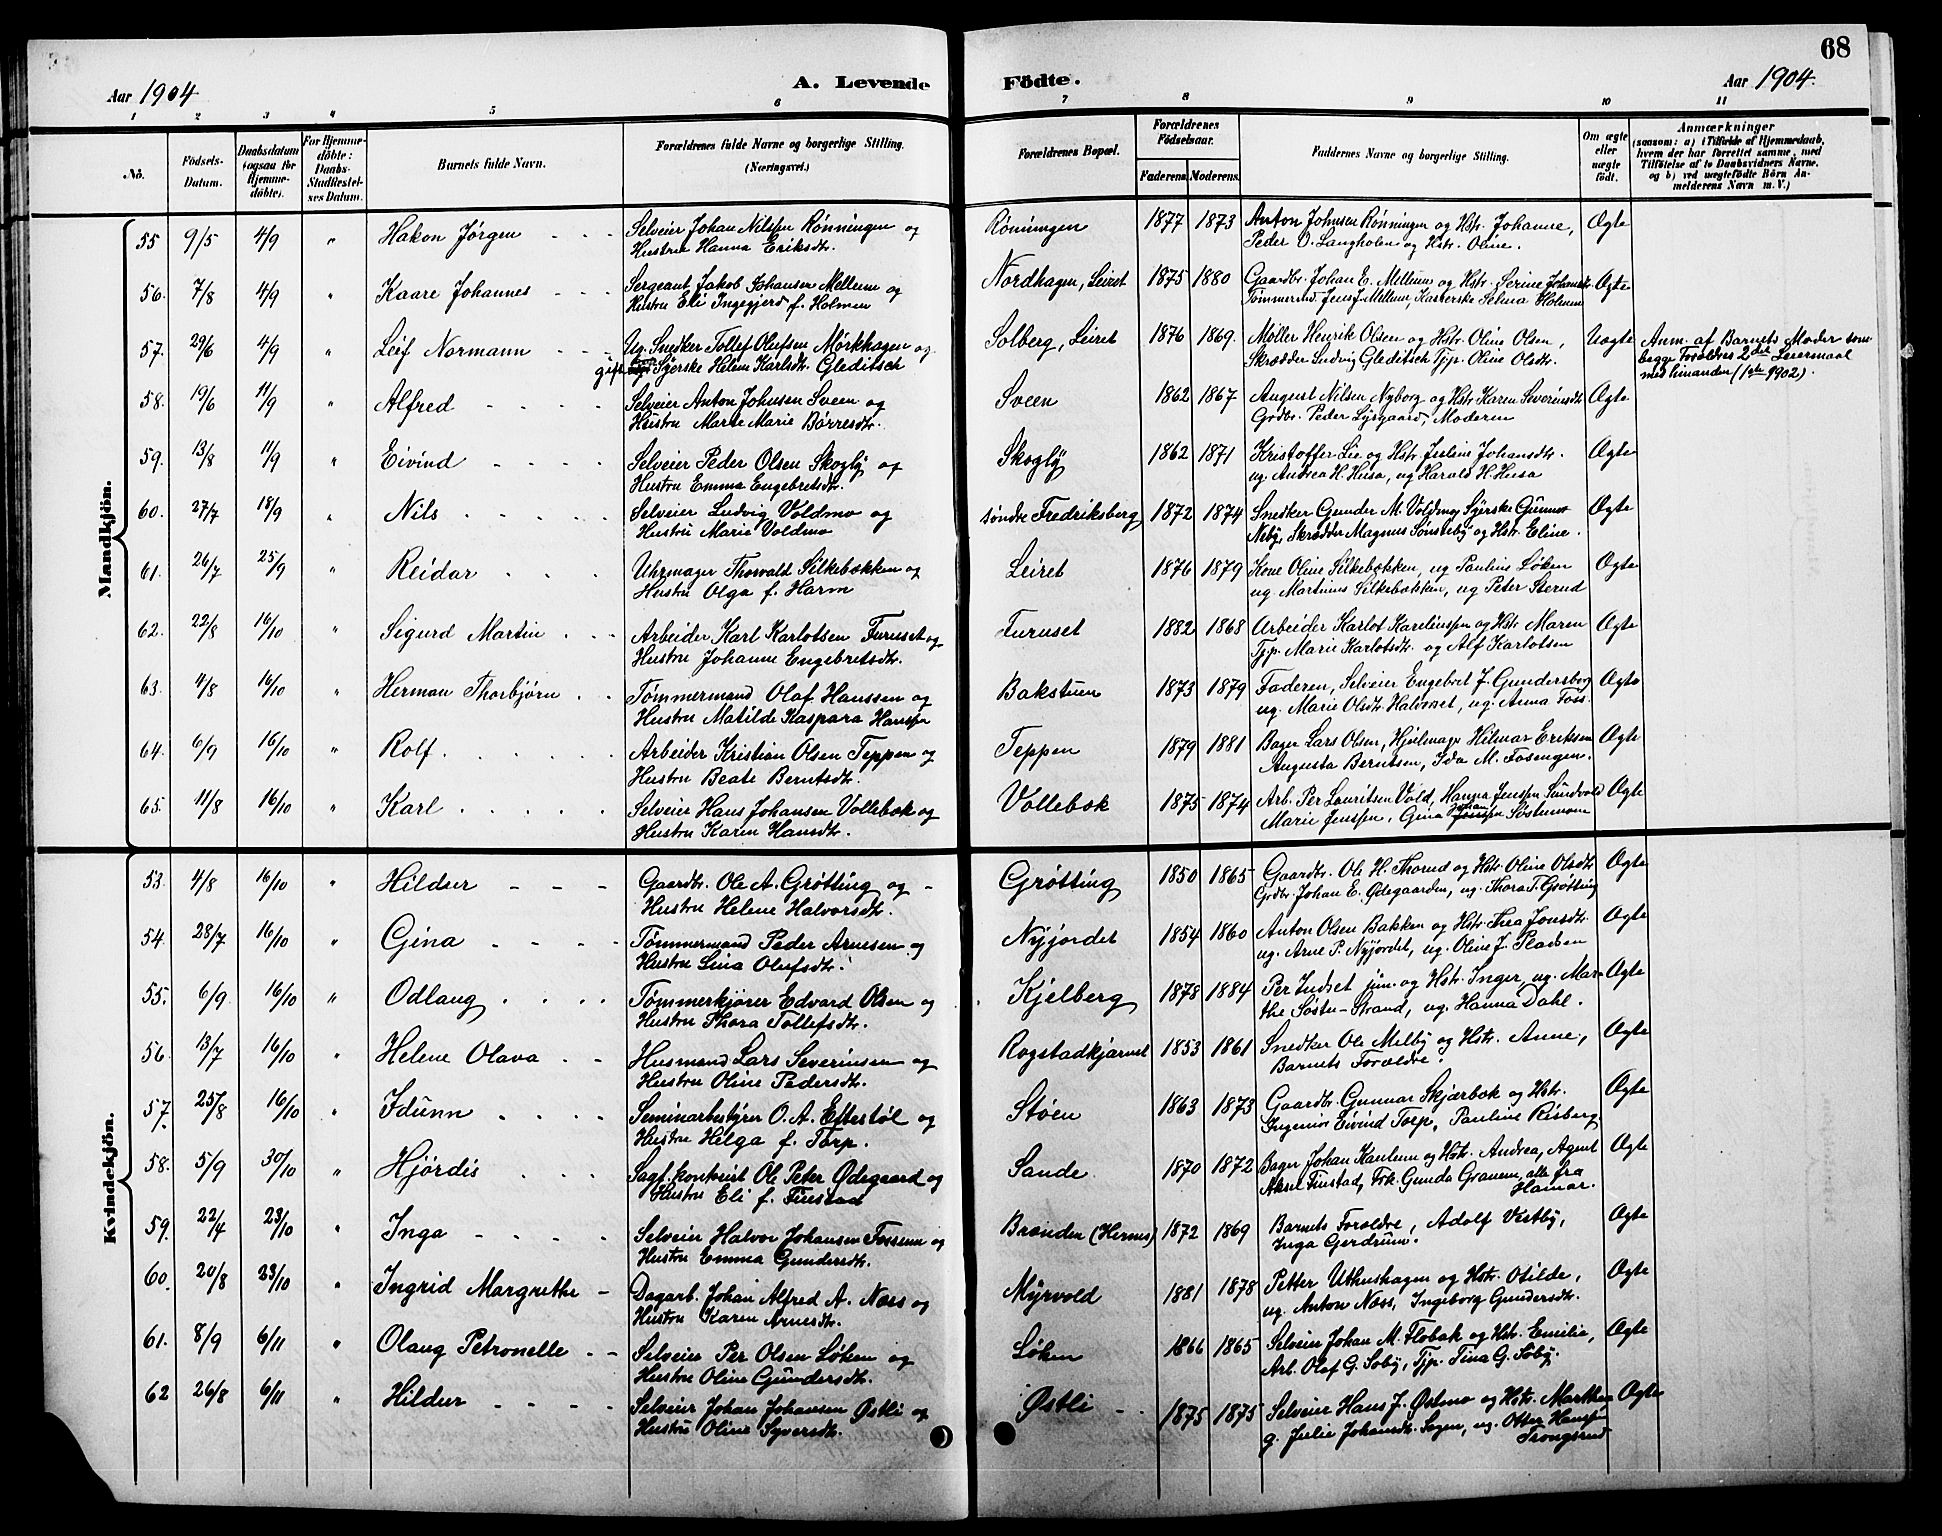 68
Aar 1904
A. Levende Födte.
Aar 1904.
1 2 3 4 5 6 7 8 9 10 11
No.
Födsels-
Datum.
Daabsdatum
(ogsaa for
Hjemme-
döbte).
For Hjemme-
döbte:
Daabs-
Stadfæstel-
ses Datum.
Barnets fulde Navn.
Forældrenes fulde Navne og borgerlige Stilling.
(Næringsvei.)
Forældrenes Bopæl.
Forældrenes
Födselsaar.
Faderens. Moderens.
Faddernes Navne og borgerlige Stilling.
Om ægte
eller
uægte
födt.
Anmærkninger
(saasom: a) i Tilfælde af Hjemmedaab,
hvem der har forrettet samme, med
Tilföielse af to Daabsvidners Navne,
og b) ved uægtefödte Börn An-
melderens Navn m. V.)
Mandkjön.
55 9/5 4/9 " Hakon Jörgen - - - Selveier Johan Nilssen Rönningen og
Hustru Hanna Eriksdtr.
Röningen 1877 1873 Anton Johnsen Rönningen og Hstr. Johanne,
Peder O. Langholen og Hstr. Oline. Ægte
56. 7/8 4/9 " Kaare Johannes - - - Sergeant Jakob Johansen Mellum og
Hustru Eli Ingegjerd f. Holmen
Nordhagen, Leiret 1875 1880 Gaardbr. Johan E. Mellum og Hstr. Serine Johansdtr.
Tømmermd. Jens J. Mellum, Kasserske Selma Holmen Ægte
57. 29/6 4/9 " Leif Normann - - - Ug. Snedker Tollef Olufsen Mörkhagen og
gift Syerske Helene Karlsdtr. Gleditsch
Solberg, Leiret 1876 1869. Møller Henrik Olsen og Hstr. Oline Olsen,
Skrædder Ludvig Gleditsch Tjp. Oline Olsdtr. Uægte
Anm. af Barnets Moder som
begge Forældres 2det Leiermaal
med hinanden (1ste 1902).
58. 19/6 11/9 " Alfred - - - - Selveier Anton Johnsen Sveen og
Hustru Marte Marie Börresdtr.
Sveen 1862 1867 August Nilsen Nyborg og Hstr. Karen Severinsdtr.
Grdbr. Peder Lysgaard, Moderen Ægte
59. 13/8 11/9 " Eivind - - - - Selveier Peder Olsen Skogly og
Hustru Emma Engebretsdtr.
Skogly 1862 1871 Kristoffer Lie og Hstr. Juline Johansdtr.
ug. Andrea H. Husa, ug Harald H. Husa Ægte
60. 27/7 18/9 " Nils - - - - - Selveier Ludvig Voldmo og
Hustru Marie Voldmo
söndre Fredriksberg 1872 1874 Snedker Gunder M. Voldmo, Syerske Gunnor
Neby, Skrædder Magnus Sønsteby og Hstr. Eline. Ægte
61. 26/7 25/9 " Reidar . . . Uhrmager Thorvald Silkebækken og
Hustru Olga f. Harm
Leiret 1876 1879 Kone Oline Silkebækken, ug Pauline Løken
ug. Martinus Silkebækken, ug Peter Sterud Ægte
62. 22/8 16/10 " Sigurd Martin . - - Arbeider Karl Karlotsen Furuset og
Hustru Johanne Engebretsdtr.
Furuset 1882 1868 Arbeider Karlot Karelinssen og Hstr. Maren
Tjp. Marie Karlotsdtr. og Alf Karlotsen Ægte
63. 4/8 16/10 " Herman Thorbjörn . - Tømmermand Olaf Hanssen og
Hustru Matilde Kaspara Hanssen
Bakstuen 1873 1879 Faderen, Selveier Engebret J. Gundersborg
ug. Marie Olsdtr. Halvorset, ug. Anna Foss. Ægte
64. 6/9 16/10 " Rolf. . . . . Arbeider Kristian Olsen Teppen og
Hustru Beate Berntsdtr.
Teppen 1879 1881 Bager Lars Olsen, Hjulmager Hilmar Eriksen
Augusta Berntsen, Ida M. Fosengen. Ægte
65. 11/8 16/10 " Karl . . . . . Selveier Hans Johansen Vollebæk og
Hustru Karen Hansdtr.
Vollebæk 1875 1874 Arb. Per Lauritsen Vold, Hanna Jenssen Sundvold
Marie Jenssen, Gina Johan Jenssen Ægte
Kvindekjön.
53. 4/8 16/10 " Hildur - - - Gaardbr. Ole A. Gröttting og -
Hustru Helene Halvorsdtr.
Grötting 1850 1865 Gaardbr. Ole H. Thorud og Hstr. Oline Olsdtr.
Grdbr. Johan E. Ødegaarden, ug. Thora T. Grötting Ægte
54. 28/7 16/10 " Gina - - - - Tømmermand Peder Arnesen og
Hustru Lina Olufsdtr.
Nyjordet 1854 1860 Anton Olsen Bakken og Hstr. Thea Jonsdtr.
ug. Arne P. Nyjordet, ug. Oline J. Pladsen Ægte
55. 6/9 16/10 " Odlaug . . . . Tømmerkjører Edvard Olsen og
Hustru Thora Tollefsdtr.
Kjelberg 1878 1884 Per Indset jun. og Hstr. Inger, ug. Mar-
the Søstu-Strand, ug. Hanna Dahl. Ægte
56. 13/7 16/10 " Helene Olava - - Husmand Lars Severinsen og
Hustru Oline Pedersdtr.
Rogstadkjærnet 1853 1861 Snedker Ole Melby og Hstr. Anne,
Barnets Forældre. Ægte
57. 25/8 16/10 " Idunn . . . . Seminarbestyrer O. A. Eftestöl og
Hustru Helga f. Torp.
Støen 1863 1873 Gaardbr. Gunnar Skjærbæk og Hstr.
Ingeniør Eivind Torp, Pauline Risberg Ægte
58. 5/9 30/10 " Hjördis . . . Sagf. kontorist Ole Peter Ødegaard og
Hustru Eli f. Finstad
Sande 1870 1872 Bager Johan Kaulum og Hstr. Andrea, Agent
Aksel Finstad, Frk. Gunda Granum, alle fra
Hamar. Ægte
59. 22/4 23/10 " Inga - - - - Selveier Halvor Johansen Fossum og
Hustru Emma Gundersdtr.
Brænden (Hernes) 1872 1869 Barnets Forældre, Adolf Vestby,
Inga Gerdrum. Ægte
60. 20/8 23/10 " Ingrid Margrethe - Dagarb. Johan Alfred A. Næss og
Hustru Karen Arnesdtr.
Myrvold 1881 1878 Petter Uthushagen og Hstr. Otilde,
ug. Anton Næss, Ingeborg Gundersdtr. Ægte
61. 8/9 6/11 " Olaug Petronelle - - Selveier Per Olsen Løken og
Hustru Oline Gundersdtr.
Løken 1866 1865 Selveier Johan M. Flobak og Hstr. Emilie,
Arb. Olaf G. Søby, Tjp. Tina G. Søby. Ægte
62 26/8 6/11 " Hildur - - - - Selveier Johan Johansen Østli og
Hustru Oline Syversdtr.
Østli - - 1875 1875 Selveier Hans J. Østmo og Hstr. Marthea
g. Julie Johansdtr. Sagen, ug. Otter Hanssen
Trongsrud Ægte